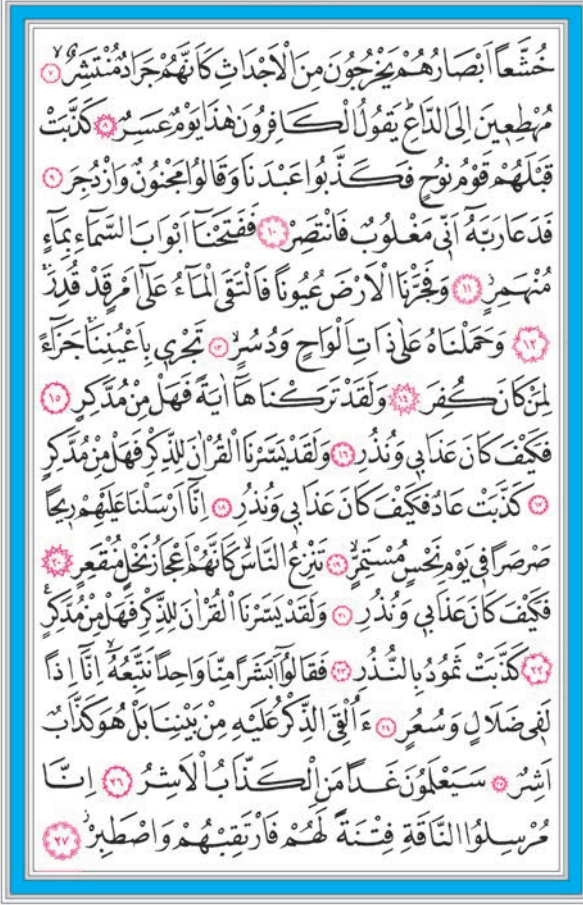 خُشَّعاً اَبْصَارُهُمْ يَخْرُجُونَ مِنَ الْاَجْدَاثِ كَاَنَّهُمْ جَرَادٌ مُنْتَشِرٌۙ ٧
مُهْطِعِينَ اِلَى الدَّاعِۜ يَقُولُ الْكَافِرُونَ هٰذَا يَوْمٌ عَسِرٌ ٨ كَذَّبَتْ
قَبْلَهُمْ قَوْمُ نُوحٍ فَكَذَّبُوا عَبْدَنَا وَقَالُوا مَجْنُونٌ وَازْدُجِرَ ٩
فَدَعَا رَبَّهُٓ اَنّ۪ي مَغْلُوبٌ فَانْتَصِرْ ١٠ فَفَتَحْنَٓا اَبْوَابَ السَّمَٓاءِ بِمَٓاءٍ
مُنْهَمِرٍۘ ١١ وَفَجَّرْنَا الْاَرْضَ عُيُوناً فَالْتَقَى الْمَٓاءُ عَلٰٓى اَمْرٍ قَدْ قُدِرَۚ
١٢ وَحَمَلْنَاهُ عَلٰى ذَاتِ اَلْوَاحٍ وَدُسُرٍۙ ١٣ تَجْر۪ي بِاَعْيُنِنَاۚ جَزَٓاءً
لِمَنْ كَانَ كُفِرَ ١٤ وَلَقَدْ تَرَكْنَاهَٓا اٰيَةً فَهَلْ مِنْ مُدَّكِرٍ ١٥
فَكَيْفَ كَانَ عَذَاب۪ي وَنُذُرِ ١٦ وَلَقَدْ يَسَّرْنَا الْقُرْاٰنَ لِلذِّكْرِ فَهَلْ مِنْ مُدَّكِرٍ
١٧ كَذَّبَتْ عَادٌ فَكَيْفَ كَانَ عَذَاب۪ي وَنُذُرِ ١٨ اِنَّٓا اَرْسَلْنَا عَلَيْهِمْ ر۪يحاً
صَرْصَراً ف۪ي يَوْمِ نَحْسٍ مُسْتَمِرٍّۙ ١٩ تَنْزِعُ النَّاسَۙ كَاَنَّهُمْ اَعْجَازُ نَخْلٍ مُنْقَعِرٍ ٢٠
فَكَيْفَ كَانَ عَذَاب۪ي وَنُذُرِ ٢١ وَلَقَدْ يَسَّرْنَا الْقُرْاٰنَ لِلذِّكْرِ فَهَلْ مِنْ مُدَّكِرٍ۟
٢٢ كَذَّبَتْ ثَمُودُ بِالنُّذُرِ ٢٣ فَقَالُٓوا اَبَشَراً مِنَّا وَاحِداً نَتَّبِعُهُٓۙ اِنَّٓا اِذاً
لَف۪ي ضَلَالٍ وَسُعُرٍ ٢٤ ءَاُلْقِيَ الذِّكْرُ عَلَيْهِ مِنْ بَيْنِنَا بَلْ هُوَ كَذَّابٌ
اَشِرٌ ٢٥ سَيَعْلَمُونَ غَداً مَنِ الْكَذَّابُ الْاَشِرُ ٢٦ اِنَّا
مُرْسِلُوا النَّاقَةِ فِتْنَةً لَهُمْ فَارْتَقِبْهُمْ وَاصْطَبِرْۘ ٢٧